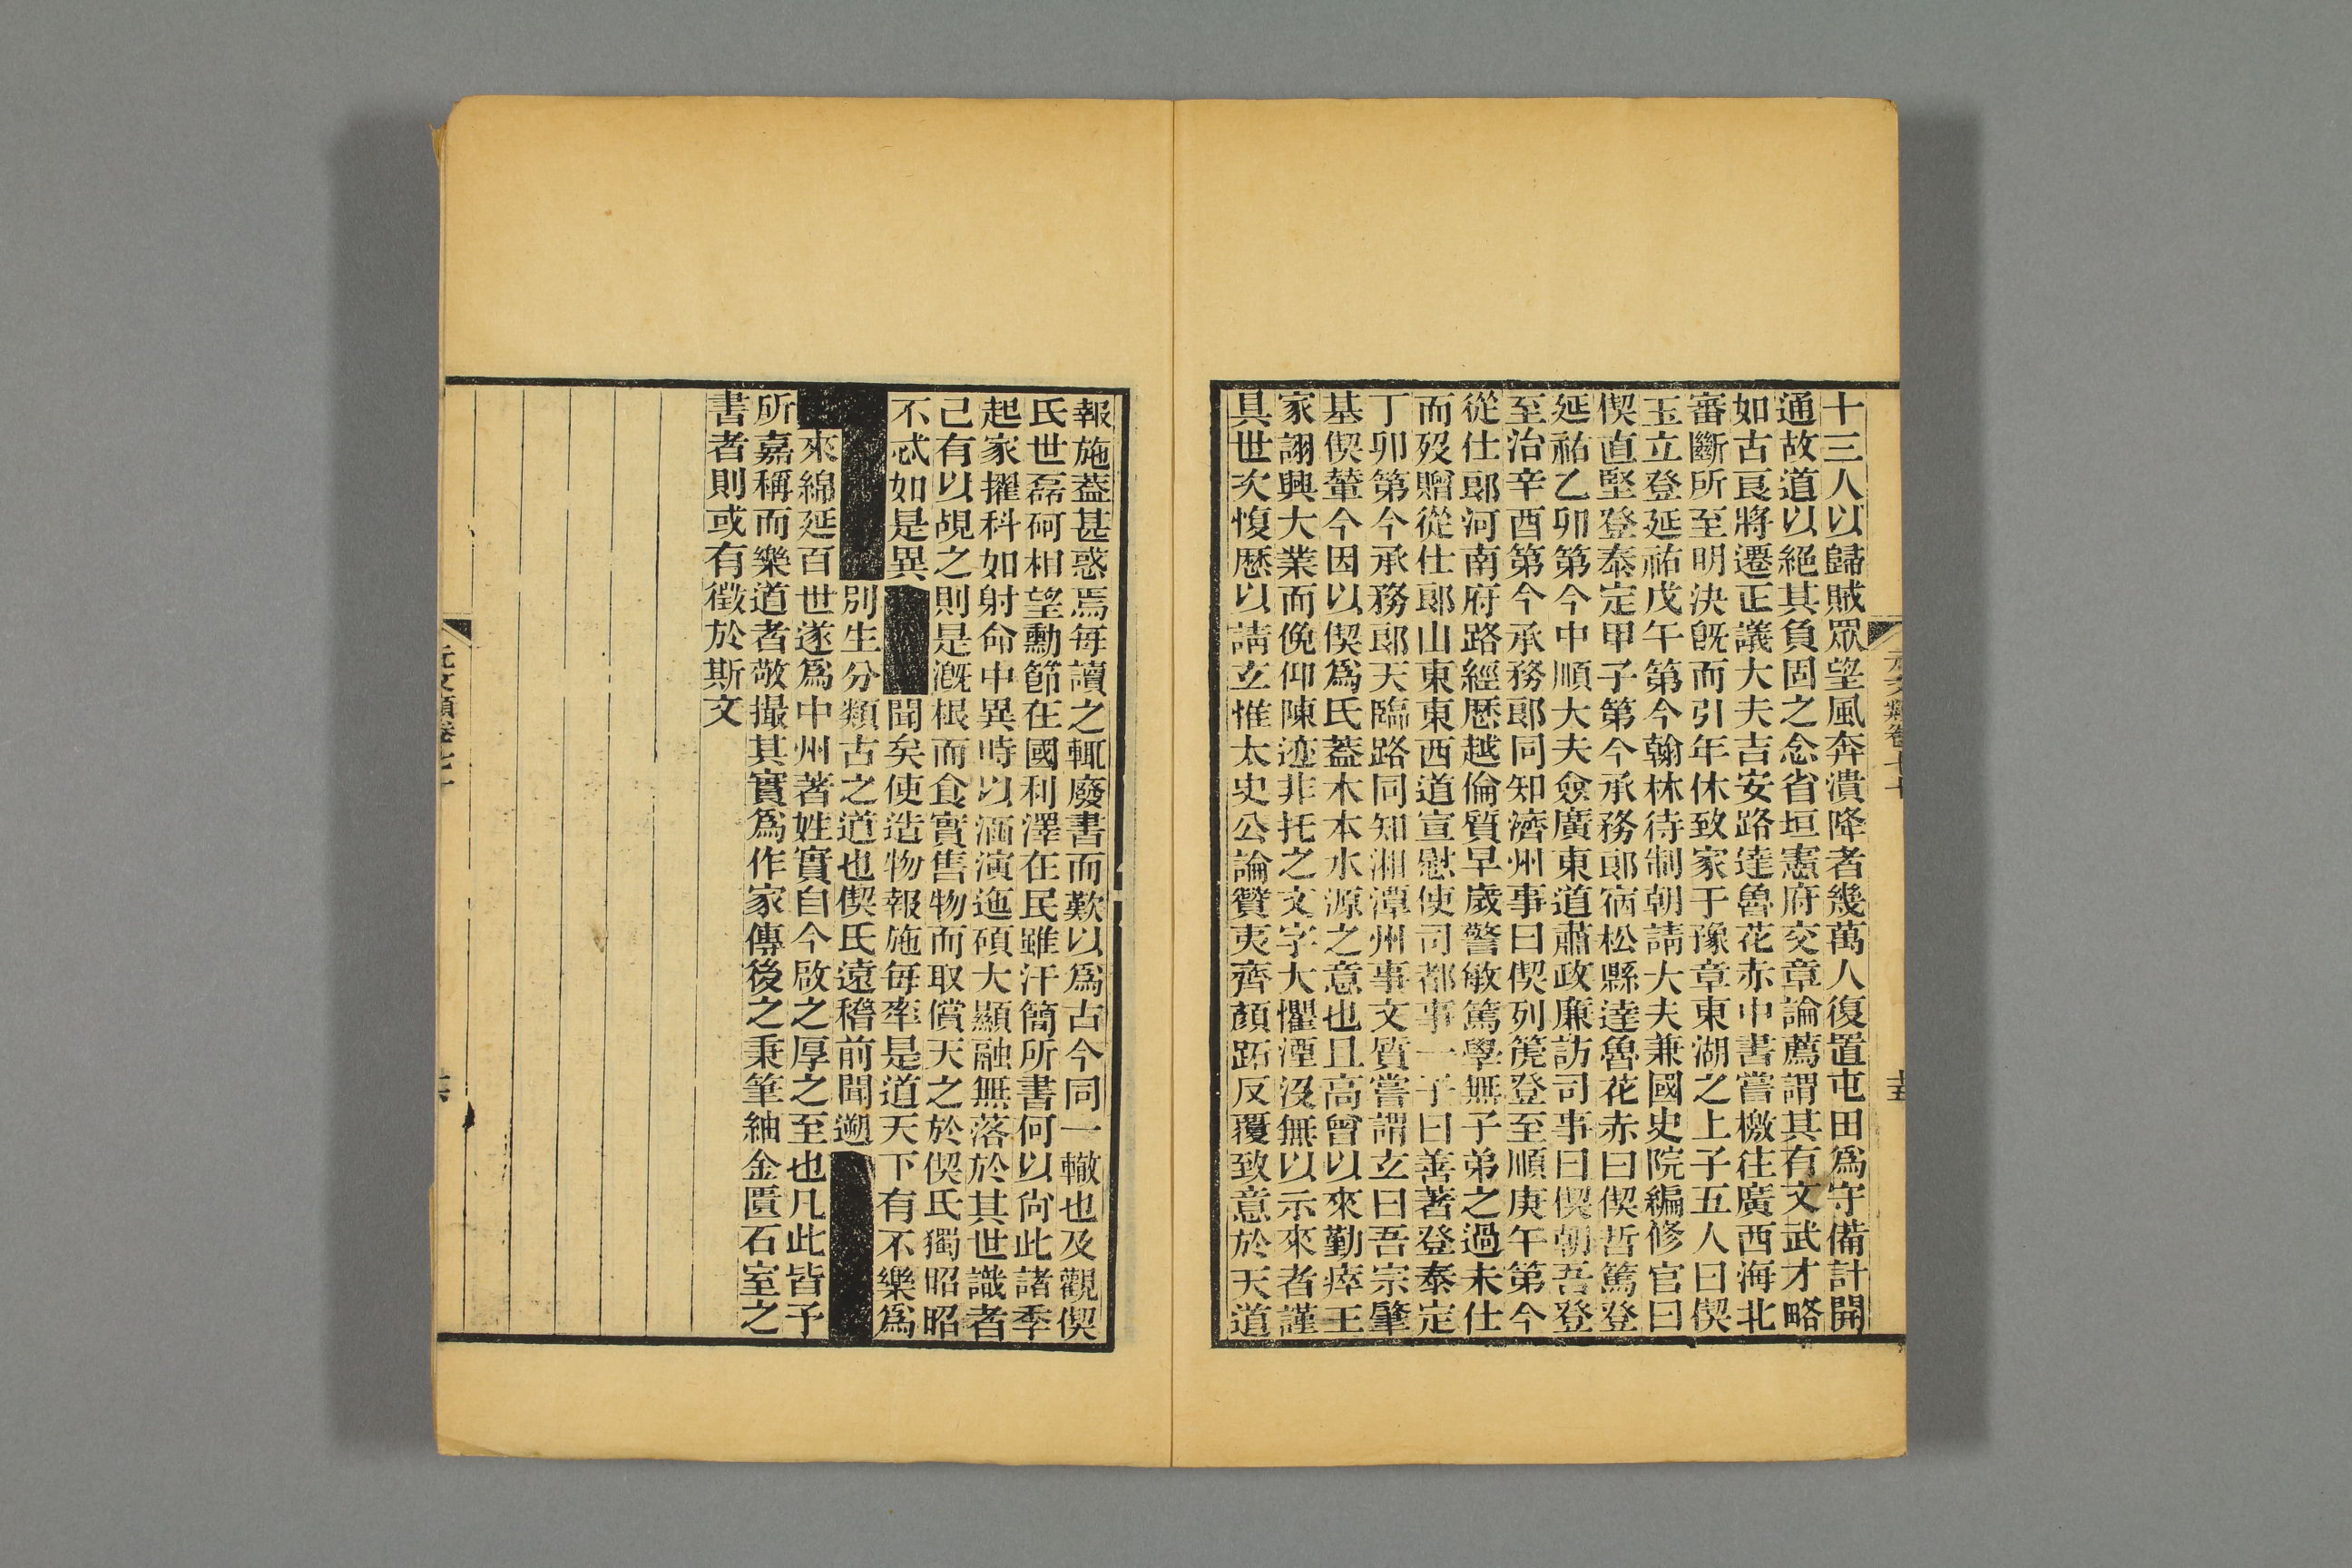 十三人以歸賊眾望風奔潰降者幾萬人復置屯田爲守備計開
通故道以絕其負固之念省垣憲府交章論薦謂其有文武才略
如古良將遷正議大夫吉安路達魯花赤中書嘗檄往廣西海北
審斷所至明決旣而引年休致家于豫章東湖之上子五人曰偰
玉立登延祐戊午第今翰林待制朝請大夫兼國史院編修官曰
偰直堅登泰定甲子第今承務郎宿松縣達魯花赤曰偰哲篤登
延祐乙卯第今中順大夫僉廣東道肅政廉訪司事曰偰朝吾登
至治辛酉第今承務郎同知濟州事曰偰列箎登至順庚午第今
從仕郎河南府路經歷越倫質早歲警敏篤學無子弟之過未仕
而歿贈從仕郎山東東西道宣慰使司都事一子曰善著登泰定
丁卯第今承務郎天臨路同知湘潭州事文質嘗謂玄曰吾宗肇
基偰輦今因以偰爲氏蓋木本水源之意也且高曾以來勤瘁王
家詡興大業而俛仰陳迹非托之文字大懼湮沒無以示來者謹
具世次愎歷以請玄惟太史公論贊夷齊顏跖反覆致意於天道
報施葢甚惑焉每讀之輒廢書而歎以爲古今同一轍也及觀偰
氏世磊砢相望勳節在國利澤在民雖汗簡所書何以尙此諸季
起家擢科如射命中異時以涵演迤碩大顯融無落於其世識者
己有以覘之則是漑根而食實售物而取償天之於偰氏獨昭昭
不忒如是異聞矣使造物報施每率是道天下有不樂爲
別生分類古之道也偰氏遠稽前聞遡
來綿延百世遂爲中州著姓實自今啟之厚之至也凡此皆予
所嘉稱而樂道者敬撮其實爲作家傳後之秉筆紬金匱石室之
書者則或有徵於斯文
元文類卷七十